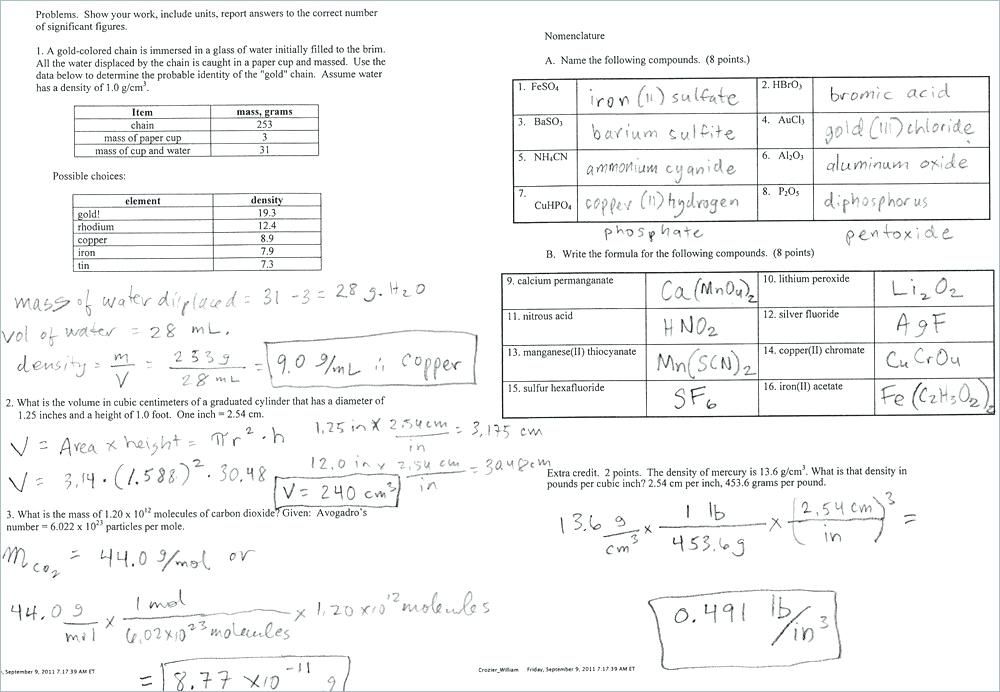 Problems. Show your work, include units, report answers to the correct number
of significant figures.
1. A gold-colored chain is immersed in a glass of water initially filled to the brim.
All the water displaced by the chain is caught in a paper cup and massed. Use the
data below to determine the probable identity of the "gold" chain. Assume water
has a density of 1.0 g/cm³.
Item mass, grams
chain 253
mass of paper cup 3
mass of cup and water 31
Possible choices:
element density
gold! 19.3
rhodium 12.4
copper 8.9
iron 7.9
tin 7.3
mass of water displaced = 31 - 3 = 28 g. H2O
vol of water = 28 mL.
density = m/V = 253 g / 28 mL = 9.0 g/mL ∴ copper
2. What is the volume in cubic centimeters of a graduated cylinder that has a diameter of
1.25 inches and a height of 1.0 foot. One inch = 2.54 cm.
V = Area x height = πr² · h
1.25 in x 2.54 cm / in = 3.175 cm
V = 3.14 · (1.588)² · 30.48
12.0 in x 2.54 cm / in = 30.48 cm
V = 240 cm³
3. What is the mass of 1.20 x 10¹² molecules of carbon dioxide? Given: Avogadro's
number = 6.022 x 10²³ particles per mole.
m CO₂ = 44.0 g/mol or
44.0 g / mol x 1 mol / 6.02x10²³ molecules x 1.20 x10¹² molecules
= 8.77 x10⁻¹¹ g
, September 9, 2011 7:17:39 AM ET
Nomenclature
A. Name the following compounds. (8 points.)
1. FeSO₄ iron (II) sulfate 2. HBrO₃ bromic acid
3. BaSO₃ barium sulfite 4. AuCl₃ gold (III) chloride
5. NH₄CN ammonium cyanide 6. Al₂O₃ aluminum oxide
7. CuHPO₄ copper (II) hydrogen 8. P₂O₅ diphosphorus
phosphate pentoxide
B. Write the formula for the following compounds. (8 points)
9. calcium permanganate Ca(MnO4)₂ 10. lithium peroxide Li₂O₂
11. nitrous acid HNO₂ 12. silver fluoride AgF
13. manganese(II) thiocyanate Mn(SCN)₂ 14. copper(II) chromate CuCrO4
15. sulfur hexafluoride SF₆ 16. iron(II) acetate Fe(C₂H₃O₂)₂
Extra credit. 2 points. The density of mercury is 13.6 g/cm³. What is that density in
pounds per cubic inch? 2.54 cm per inch, 453.6 grams per pound.
13.6 g / cm³ x 1 lb / 453.6 g x (2.54 cm / in)³ =
0.491 lb/in³
Crozier_William Friday, September 9, 2011 7:17:39 AM ET